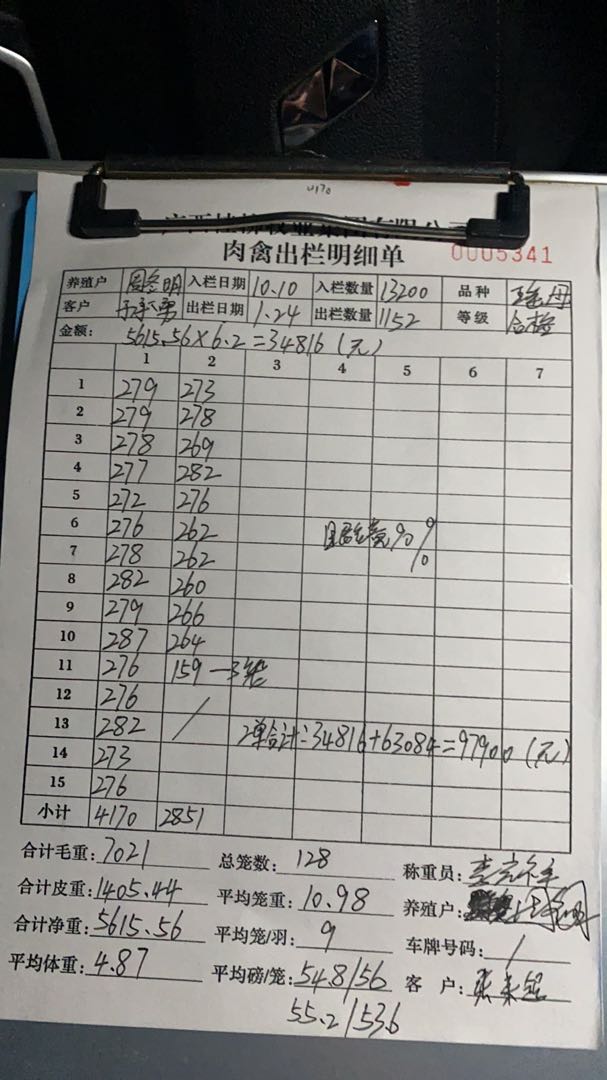 4170
肉禽出栏明细单 0005341
养殖户 入栏日期 10.10 入栏数量 13200 品种
客户 出栏日期 1.24 出栏数量 1152 等级 合格
金额: 5615.56×6.2=34816(元)
1 2 3 4 5 6 7
1 279 273
2 279 278
3 278 269
4 277 282
5 272 276
6 276 262
7 278 262
8 282 260
9 279 266
10 287 264
11 276 159
12 276
13 282 / 2单合计:34816+63084=97900(元)
14 273
15 276
小计 4170 2851
合计毛重: 7021 总笼数: 128 称重员:
合计皮重: 1405.44 平均笼重: 10.98 养殖户:
合计净重: 5615.56 平均笼/羽: 9 车牌号码: /
平均体重: 4.87 平均磅/笼: 54.8/56 客 户:
55.2/53.6